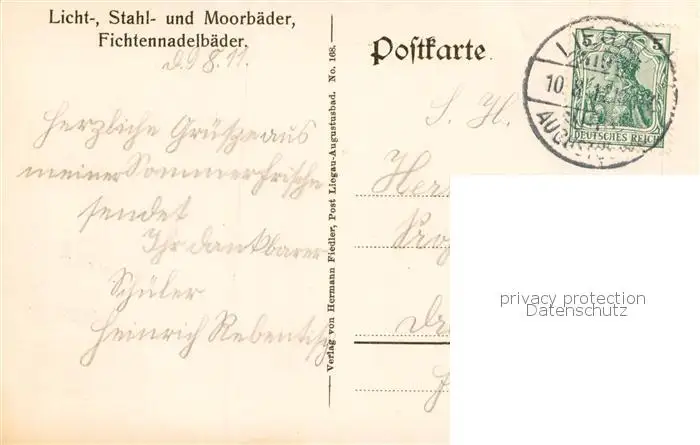 Licht-, Stahl- und Moorbäder,
Fichtennadelbäder.
d. 9 8. 11.
Herzliche Grüsse aus
meiner Sommerfrische
sendet
Ihr dankbarer
Schüler
Heinrich Rebentisch
Verlag von Hermann Fiedler, Post Liegau-Augustusbad. No. 168.
Postkarte.
S. H.
Herr
5 5
DEUTSCHES REICH
LIEGAU
10. 8.
privacy protection
Datenschutz